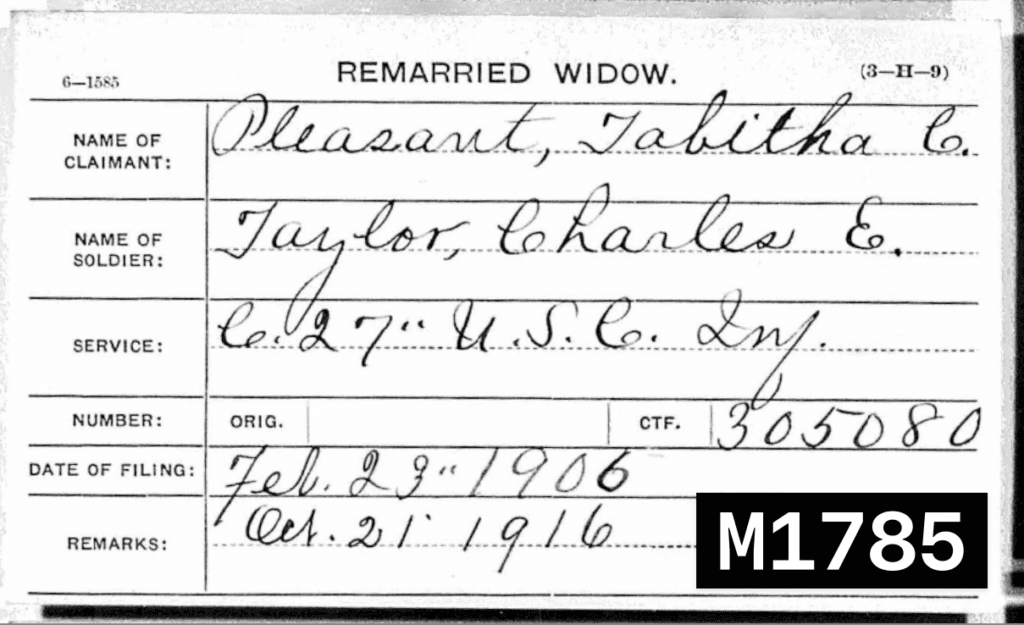 6—1585 REMARRIED WIDOW. (3—H—9)
NAME OF CLAIMANT: Pleasant, Tabitha C.
NAME OF SOLDIER: Taylor, Charles E.
SERVICE: C. 27" U.S.C. Inf.
NUMBER: ORIG. CTF. 305080
DATE OF FILING: Feb. 23" 1906
REMARKS: Oct. 21' 1916
M1785